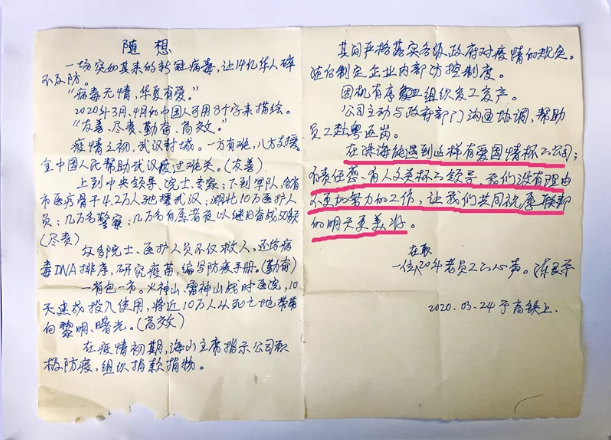 随 想
一场突如其来的新冠病毒，让14亿华人猝
不及防。
"病毒无情，华夏有爱。"
2020年3月、4月的中国人可用8个字来描绘。
"友善、尽责、勤奋、高效。"
疫情之初，武汉封城。一方有难，八方支援
全中国人民帮助武汉度过难关。（友善）
上到中央领导、院士、专家；下到军队、各省
市医疗骨干4.2万人驰援武汉；湖北10万医护人
员；几万名警察；几万名
（尽责）
众多院士、医护人员不仅救人，还给病
毒DNA排序，研究疫苗，编写防疫手册。（勤奋）
一省包一市。火神山、雷神山战时医院，10
天建成投入使用，将近10万人从死亡地带带
向黎明、曙光。（高效）
在疫情初期，海山主席指示公司积
极防疫，组织捐款捐物。
其间严格落实各级政府对疫情的规定。
适时制定企业内部防控制度。
因机有序 组织复工复产。
公司主动与政府部门沟通协调，帮助
员工赴粤返岗。
在深海能遇到这样有爱国情怀的公司；
有责任感、有人文关怀的领导。我们没有理由
不更加努力的工作，让我们共同祝愿
的明天更美好。
在职
一位20年老员工的心声。
2020.03.24于高铁上.